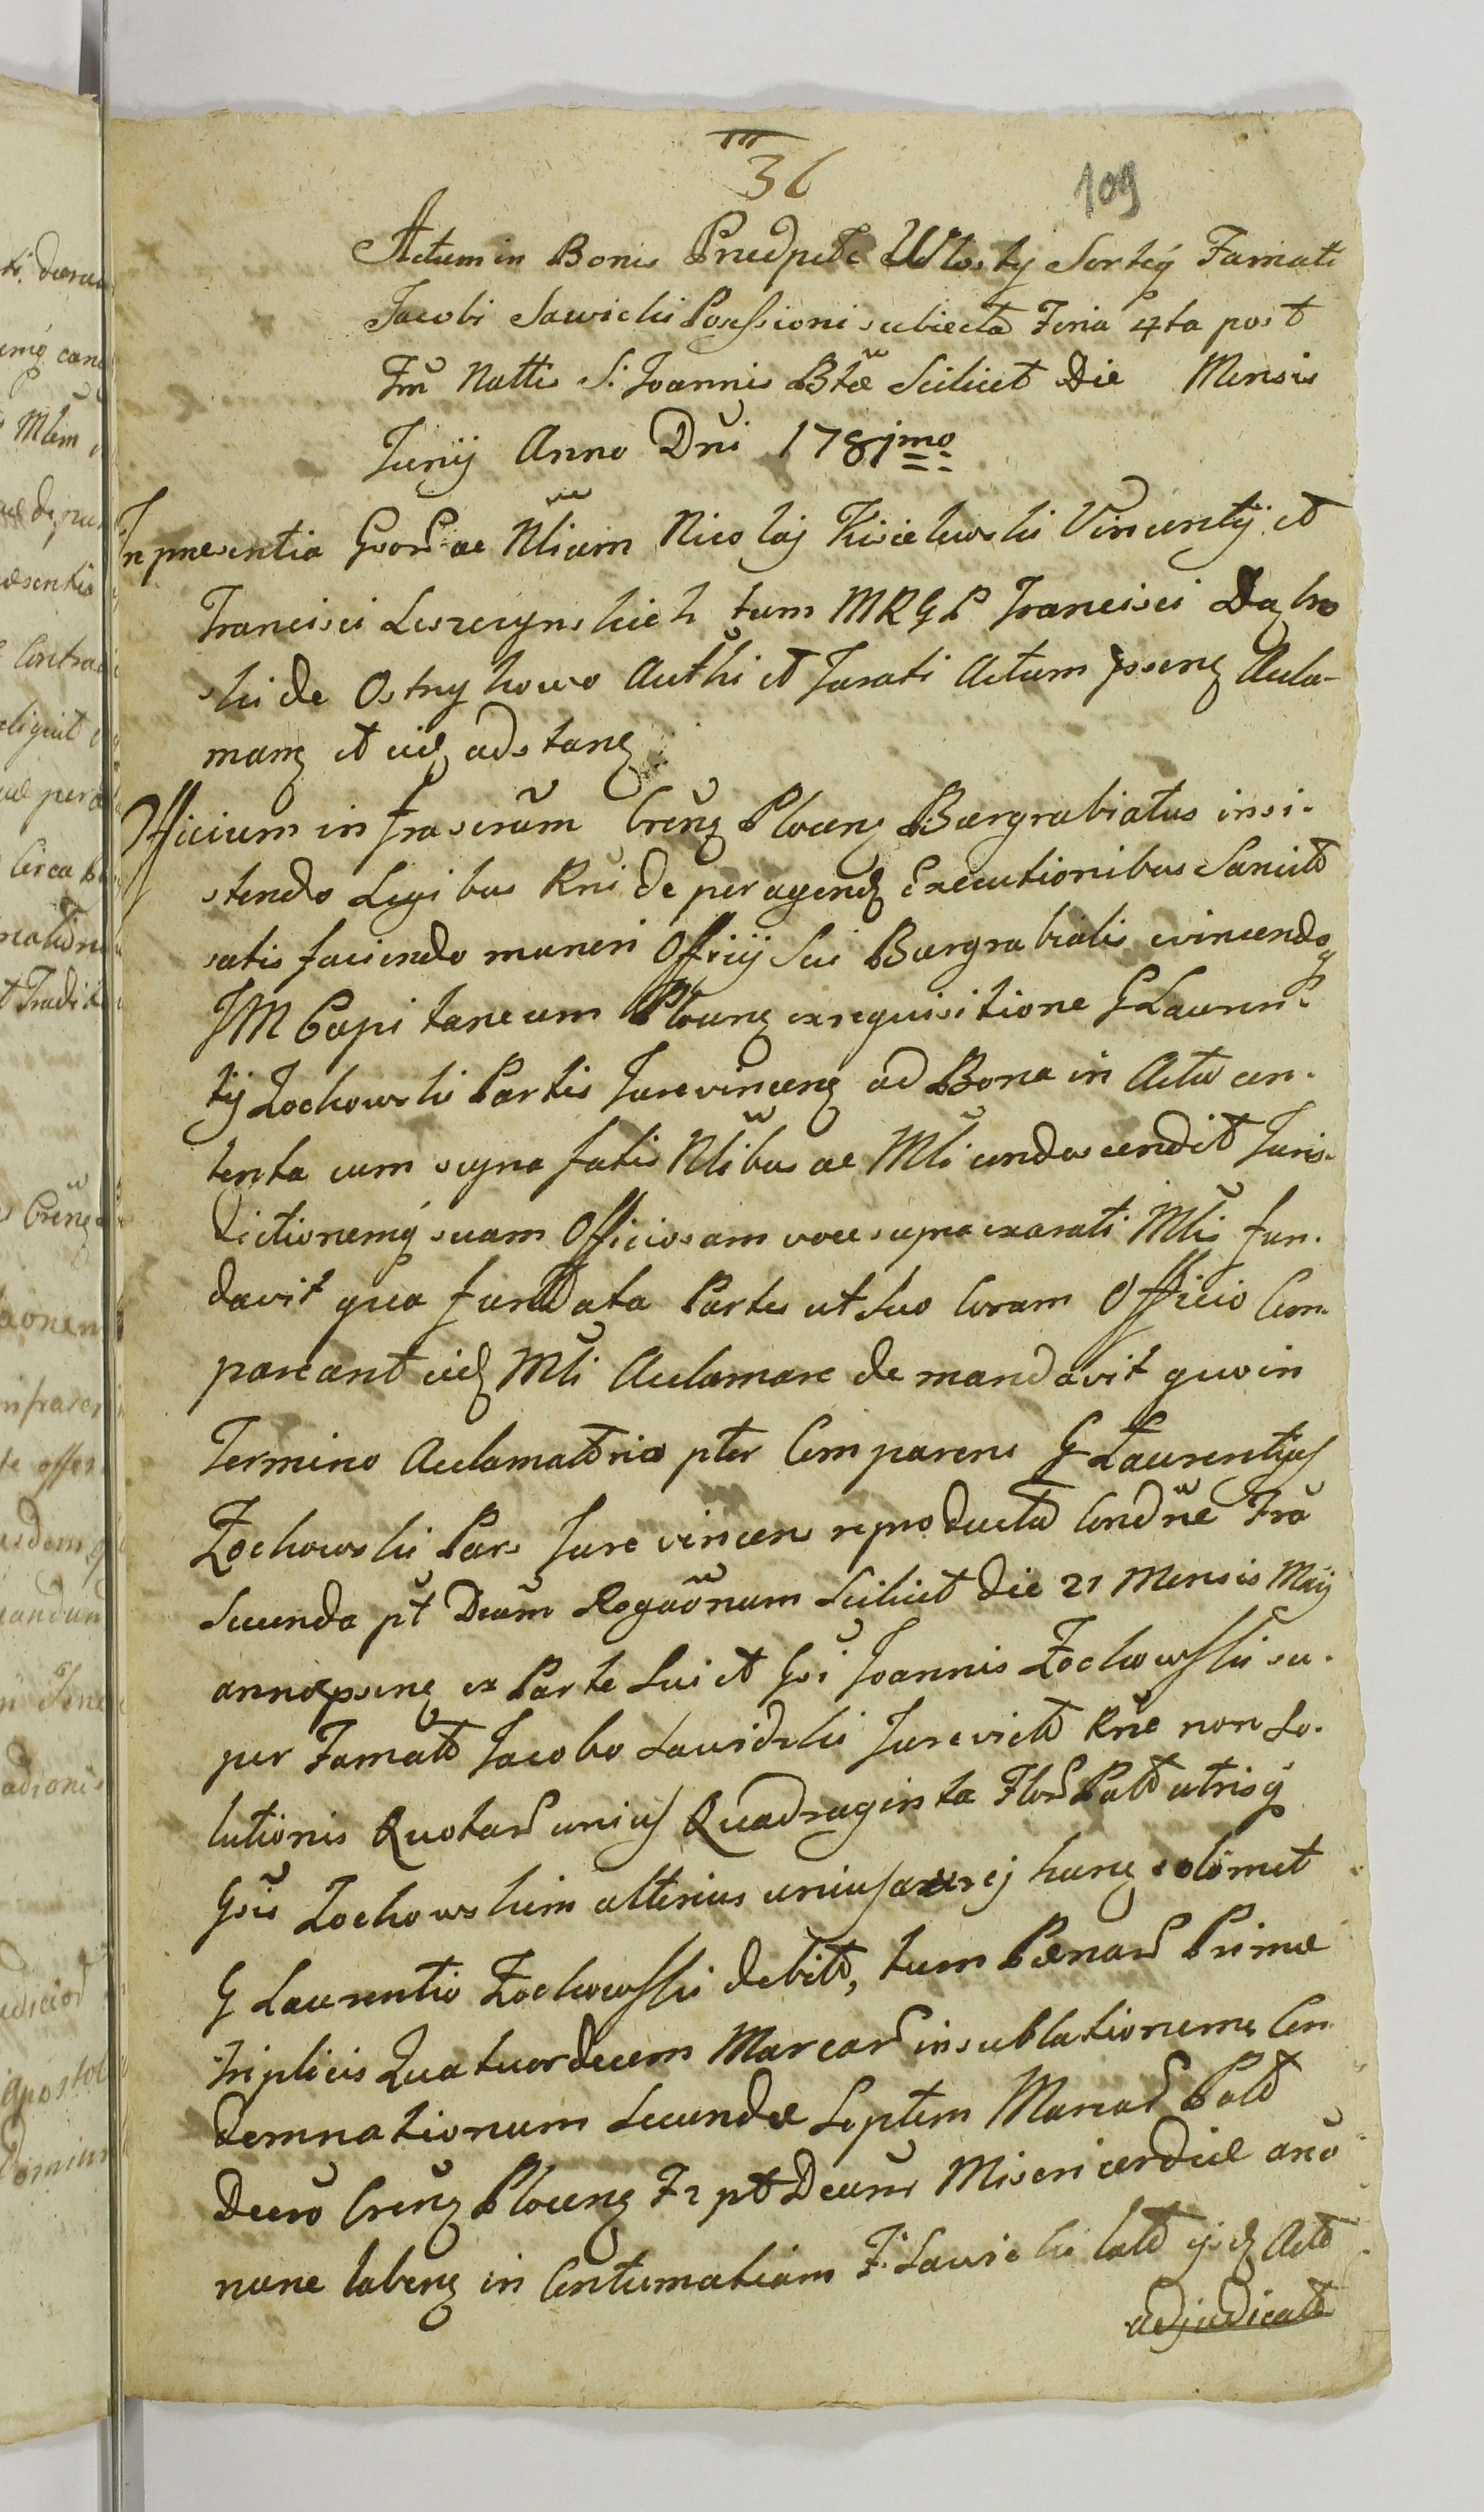 36
109
Actum in Bonis Praedpctt Włosty Sortis Famati
Jacobi Sawicki Possessioni subiecta Feria 4ta post
Fm Nattis S. Joannis Btae Scilicet Die Mensis
Junij Anno Dni 1781mo
In praesentia Gsor ac Nlium Nicolaj Kisielewski Vincentij et
Francisci Leszczynskich tum MRGP Francisci Dąbro
ski de Ostrykowo Authi et Jurati Actum psenz Acla-
manz et eidz adstanz
Officium infrascrum Crenz Plocenz Burgrabiatus insi-
stendo Legibus Rni de peragendz Executionibus Sancitt
satis faciendo muneri Officij Sui Burgrabialis evincendoq
JM Capitaneum Plocenz ex requisitione G Lauren-
tij Zochowski Partis Jurevincenz ad Bona in Actu con-
tenta cum supra fatis Nlibus ac Mli condescendit Juris-
dictionemq suam Officiosam voce supra exarati Mlis fun-
davit qua fundata Partes ut suo Coram Officio Com-
pareant eidz Mli Aclamare demandavit quo in
Termino Aclamatorio pter Comparens G Laurentius
Zochowski Pars Jure vincens reproducta Condne Fra
Secunda pt Dcam Rogaonum Scilicet die 21 Mensis Maij
anno psenz ex Parte Sui et Gsi Joannis Zochowski su-
per Famatt Jacobo Sawidzki Jurevictt Rne non So-
lutionis Quotar unius Quadraginta Flor Poltt utrisq
Gsis Zochowskim alterius unius aurej hung solimet
G Laurentio Zochowski debitt, tum Paenar Primae
triplicis Quatuordecem Marcar in sublationeme Con
demnationum Secundae Septem Marcar Poltt
Decro Crenz Plocenz F2 pt Dcam Misericordiae ano
nunc labenz in Contumatiam F. Sawicki latt ejsdz Actt
adjudicatt